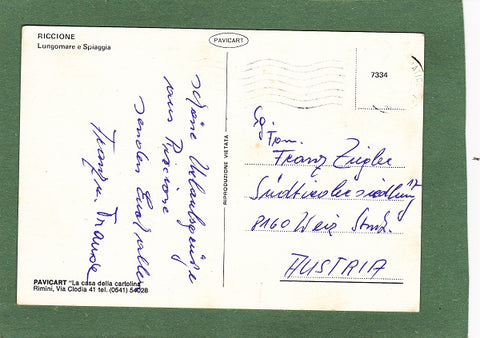 RICCIONE
Lungomare e Spiaggia
PAVICART
7334
schöne Urlaubsgrüße
aus Riccione
senden Euch allen
Franz u. Traude
RIPRODUZIONE VIETATA
Fam.
Franz Ziegler
Südtirolersiedlung 17
8160 Weiz Stmk.
AUSTRIA
PAVICART "La casa della cartolina"
Rimini, Via Clodia 41 tel. (0541) 54028